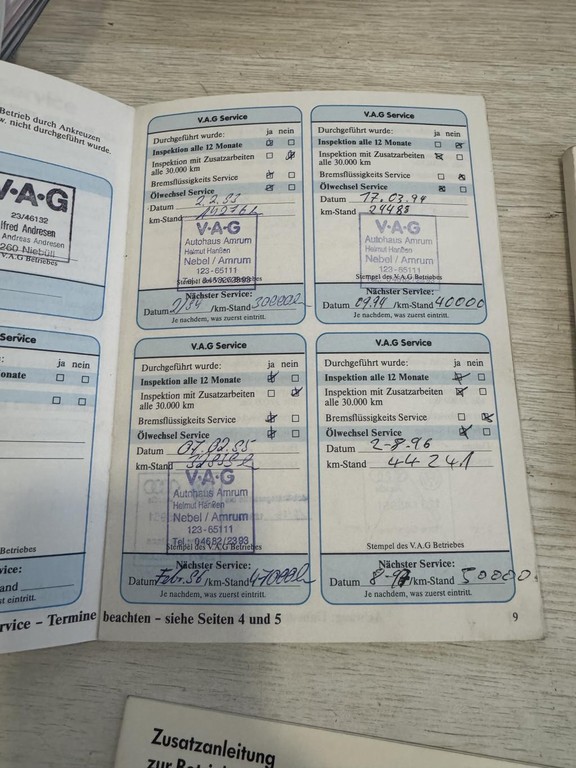 Betrieb durch Ankreuzen
w. nicht durchgeführt wurde.
V·A·G
23/46132
Andreas Andresen
Niebüll
V.A.G Betriebes
V.A.G Service
Durchgeführt wurde:
ja nein
Inspektion alle 12 Monate
Inspektion mit Zusatzarbeiten
alle 30.000 km
Bremsflüssigkeits Service
Ölwechsel Service
Datum 2.2.93
km-Stand
V·A·G
Autohaus Amrum
Helmut Hanßen
Nebel / Amrum
123-65111
Stempel des V.A.G Betriebes
Nächster Service:
Datum 2/94 /km-Stand
Je nachdem, was zuerst eintritt.
V.A.G Service
Durchgeführt wurde:
ja nein
Inspektion alle 12 Monate
Inspektion mit Zusatzarbeiten
alle 30.000 km
Bremsflüssigkeits Service
Ölwechsel Service
Datum 17.03.94
km-Stand
V·A·G
Autohaus Amrum
Helmut Hanßen
Nebel / Amrum
123-65111
Stempel des V.A.G Betriebes
Nächster Service:
Datum /km-Stand 40000
Je nachdem, was zuerst eintritt.
Service
ja nein
onate
Betriebes
vice:
and
st eintritt.
V.A.G Service
Durchgeführt wurde:
ja nein
Inspektion alle 12 Monate
Inspektion mit Zusatzarbeiten
alle 30.000 km
Bremsflüssigkeits Service
Ölwechsel Service
Datum 07.02.95
km-Stand
V·A·G
Autohaus Amrum
Helmut Hanßen
Nebel / Amrum
123-65111
Tel. 04682/2393
Stempel des V.A.G Betriebes
Nächster Service:
Datum Febr. 96 /km-Stand
Je nachdem, was zuerst eintritt.
V.A.G Service
Durchgeführt wurde:
ja nein
Inspektion alle 12 Monate
Inspektion mit Zusatzarbeiten
alle 30.000 km
Bremsflüssigkeits Service
Ölwechsel Service
Datum 2-8-96
km-Stand 44241
Stempel des V.A.G Betriebes
Nächster Service:
Datum 8-97 /km-Stand 50000
Je nachdem, was zuerst eintritt.
rvice – Termine beachten – siehe Seiten 4 und 5
9
Zusatzanleitung